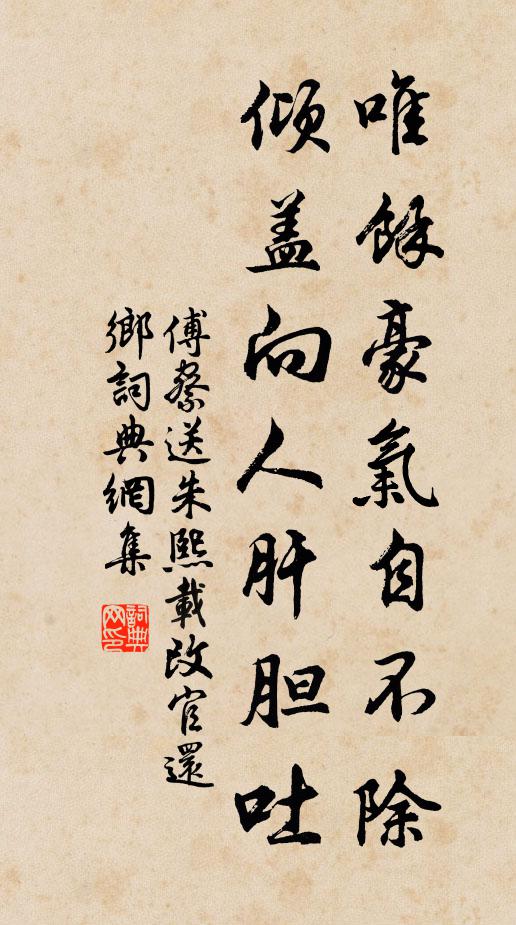 唯餘豪氣自不除
倾盖向人肝胆吐
傅察送朱熙載改官還
鄉詞典網集
詞典
网印